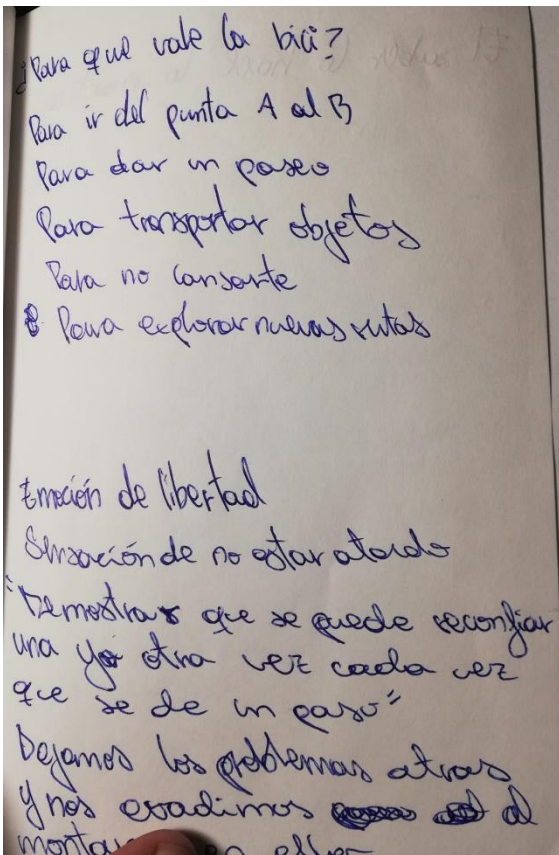 ¿Para que vale la bici?
Para ir del punta A al B
Para dar un paseo
Para transportar objetos
Para no cansarte
Para explorar nuevas rutas
Emoción de libertad
Sensación de no estar atado
"Demostrar que se puede reconfiar
una y otra vez cada vez
que se de un paso"
Dejamos los problemas atras
y nos evadimos al
montar en